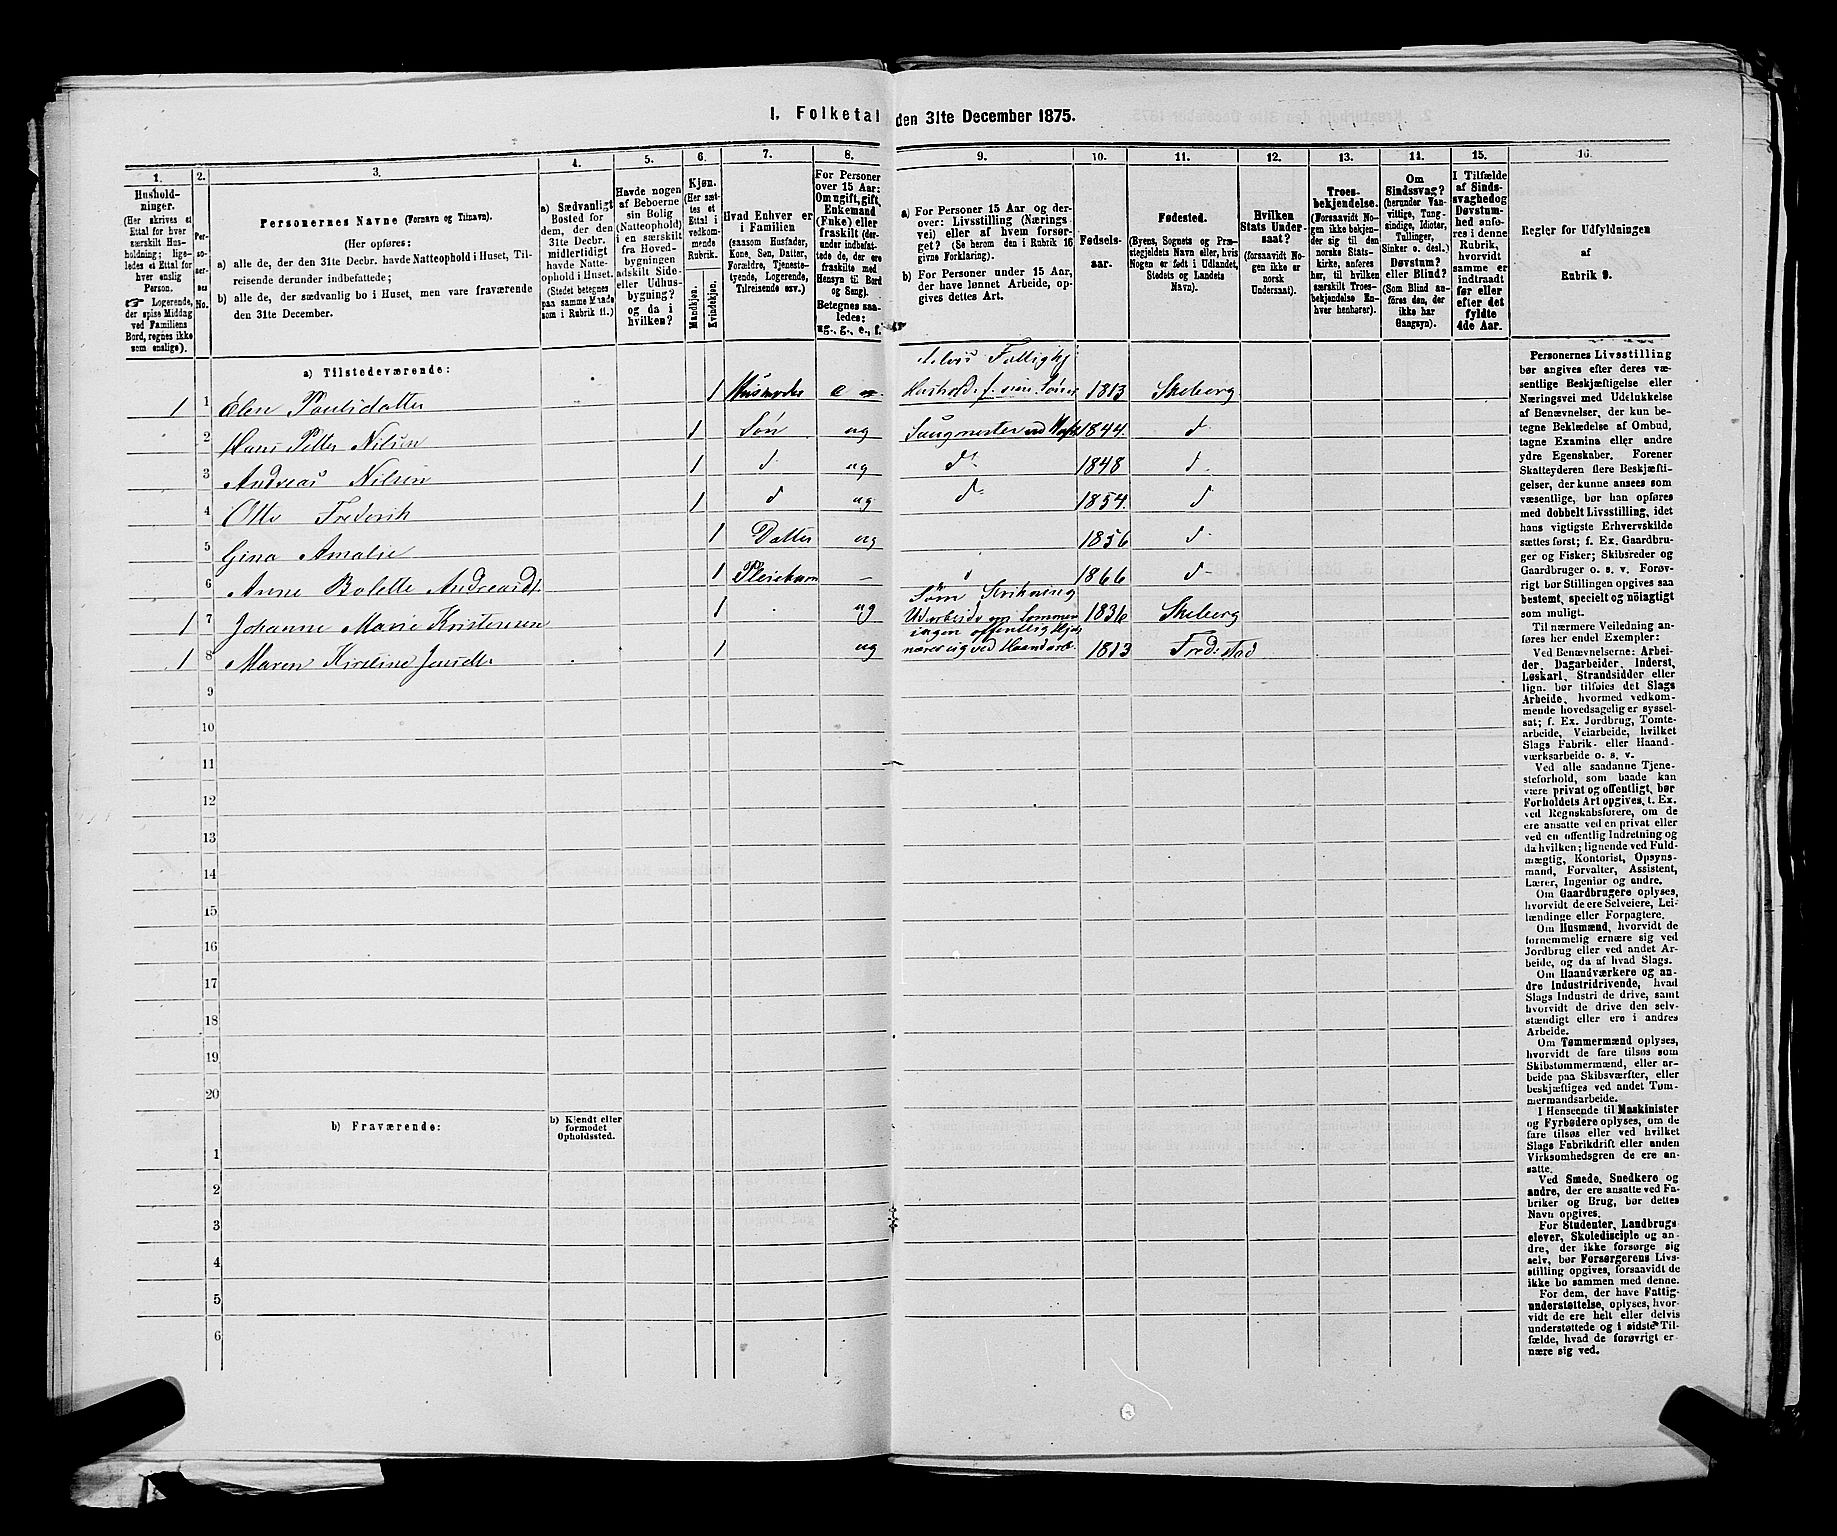 I. Folketal den 31te December 1875.
1.
2.
3.
4.
5.
6.
7.
8.
9.
10.
11.
12.
13.
14.
15.
16.
Hushold-
ninger.
(Her skrives et
Ettal for hver
særskilt Hus-
holdning; lige-
ledes et Ettal for
hver enslig
Person.
☞ Logerende,
der spise Middag
ved Familiens
Bord, regnes ikke
som enslige).
Per-
soner-
nes
No.
Personernes Navne (Fornavn og Tilnavn).
(Her opføres:
a) alle de, der den 31te Decbr. havde Natteophold i Huset, Til-
reisende derunder indbefattede;
b) alle de, der sædvanlig bo i Huset, men vare fraværende
den 31te December.
a) Sædvanligt
Bosted for
dem, der den
31te Decbr.
midlertidigt
havde Natte-
ophold i Huset.
(Stedet betegnes
paa samme Maade
som i Rubrik 11.)
Havde nogen
af Beboerne
sin Bolig
(Natteophold)
i en særskilt
fra Hoved-
bygningen
adskilt Side-
eller Udhus-
bygning?
og da i
hvilken?
Kjøn.
(Her sæt-
tes et
Ettal i
vedkom-
mende
Rubrik.
Mandkjøn.
Kvindekjøn.
Hvad Enhver er
i Familien
(saasom Husfader,
Kone, Søn, Datter,
Forældre, Tjeneste-
tyende, Logerende,
Tilreisende osv.)
For Personer
over 15 Aar:
Om ugift, gift,
Enkemand
(Enke) eller
fraskilt (der-
under indbefat-
tede de, der ere
fraskilte med
Hensyn til Bord
og Seng).
Betegnes saa-
ledes:
ug., g., e., f.
a) For Personer 15 Aar og der-
over: Livsstilling (Nærings-
vei) eller af hvem forsør-
get? (Se herom den i Rubrik 16
givne Forklaring).
b) For Personer under 15 Aar,
der have lønnet Arbeide, op-
gives dettes Art.
Fødsels-
aar.
Fødested.
(Byens, Sognets og Præ-
stegjeldets Navn eller, hvis
Nogen er født i Udlandet,
Stedets og Landets
Navn).
Hvilken
Stats Under-
saat?
(forsaavidt No-
gen ikke er
norsk
Undersaat).
Troes-
bekjendelse.
(Forsaavidt No-
gen ikke bekjen-
der sig til den
norske Stats-
kirke, anføres
her, til hvilken
særskilt Troes-
bekjendelse En-
hver henhører).
Om
Sindssvag?
(herunder Van-
vittige, Tung-
sindige, Idioter,
Tullinger,
Sinker o. desl.).
Døvstum?
eller Blind?
(Som Blind an-
føres den, der
ikke har
Gangsyn).
I Tilfælde
af Sinds-
svaghed og
Døvstum-
hed anfø-
res i denne
Rubrik,
hvorvidt
samme er
indtraadt
før eller
efter det
fyldte
4de Aar.
Regler for Udfyldningen
af
Rubrik 9.
a) Tilstedeværende:
1 1 Elen Poulsdatter 1 Husmoder e Hushold. f. sin Sønner 1813 Skeberg
2 Hans Petter Nilsen 1 Søn ug Saugmester 1844. d
3 Andreas Nilsen 1 d ug d 1848 d
4 Otto Frederik 1 d ug d 1854. d
5 Gina Amalie 1 Datter ug 1856 d
6 Anne Bolette Andreasdt. 1 Pleiebarn — 1866 d
1 7 Johanne Marie Kristensen 1 ug Søm Strikning 1836 Skeberg
1 8 Maren Kirstine Jensdtr 1 ug ingen offentlig Hjelp nærer sig ved Haandarb. 1813 Fred:stad
9
10
11
12
13
14
15
16
17
18
19
20
b) Fraværende:
b) Kjendt eller
formodet
Opholdssted.
1
2
3
4
5
6
Personernes Livsstilling
bør angives efter deres væ-
sentlige Beskjæftigelse eller
Næringsvei med Udelukkelse
af Benævnelser, der kun be-
tegne Beklædelse af Ombud,
tagne Examina eller andre
ydre Egenskaber. Forener
Skatteyderen flere Beskjæfti-
gelser, der kunne ansees som
væsentlige, bør han opføres
med dobbelt Livsstilling, idet
hans vigtigste Erhvervskilde
sættes først; f. Ex. Gaardbru-
ger og Fisker; Skibsreder og
Gaardbruger o. s. v. Forøv-
rigt bør Stillingen opgives saa
bestemt, specielt og nøiagtigt
som muligt.
Til nærmere Veiledning an-
føres her endel Exempler:
Ved Benævnelserne: Arbei-
der, Dagarbeider, Inderst,
Løskarl, Strandsidder eller
lign. bør tilføies det Slags
Arbeide, hvormed vedkom-
mende hovedsagelig er syssel-
sat; f. Ex. Jordbrug, Tomte-
arbeide, Veiarbeide, hvilket
Slags Fabrik- eller Haand-
værksarbeide o. s. v.
Ved alle saadanne Tjene-
steforhold, som baade kan
være privat og offentligt, bør
Forholdets Art opgives, t. Ex.
ved Regnskabsførere, om de
ere ansatte ved en privat eller
ved en offentlig Indretning og
da hvilken; lignende ved Fuld-
mægtig, Kontorist, Opsyns-
mand, Forvalter, Assistent,
Lærer, Ingeniør og andre.
Om Gaardbrugere oplyses,
hvorvidt de ere Selveiere, Lei-
lændinge eller Forpagtere.
Om Husmænd, hvorvidt de
fornemmelig ernære sig ved
Jordbrug eller ved andet Ar-
beide, og da af hvad Slags.
Om Haandværkere og an-
dre Industridrivende, hvad
Slags Industri de drive, samt
hvorvidt de drive den selv-
stændigt eller ere i andres
Arbeide.
Om Tømmermænd oplyses,
hvorvidt de fare tilsøs som
Skibstømmermænd, eller ar-
beide paa Skibsværfter, eller
beskjæftiges ved andet Tøm-
mermandsarbeide.
I Henseende til Maskinister
og Fyrbødere oplyses, om de
fare tilsøs eller ved hvilket
Slags Fabrikdrift eller anden
Virksomhedsgren de ere an-
satte.
Ved Smede, Snedkere og
andre, der ere ansatte ved Fa-
briker og Brug, bør dettes
Navn opgives.
For Studenter, Landbrugs-
elever, Skoledisciple og an-
dre, der ikke forsørge sig
selv, bør Forsørgerens Livs-
stilling opgives, forsaavidt de
ikke bo sammen med denne.
For dem, der have Fattig-
understøttelse, oplyses, hvor-
vidt de ere helt eller delvis
understøttede og i sidste Til-
fælde, hvad de forøvrigt er-
nære sig ved.